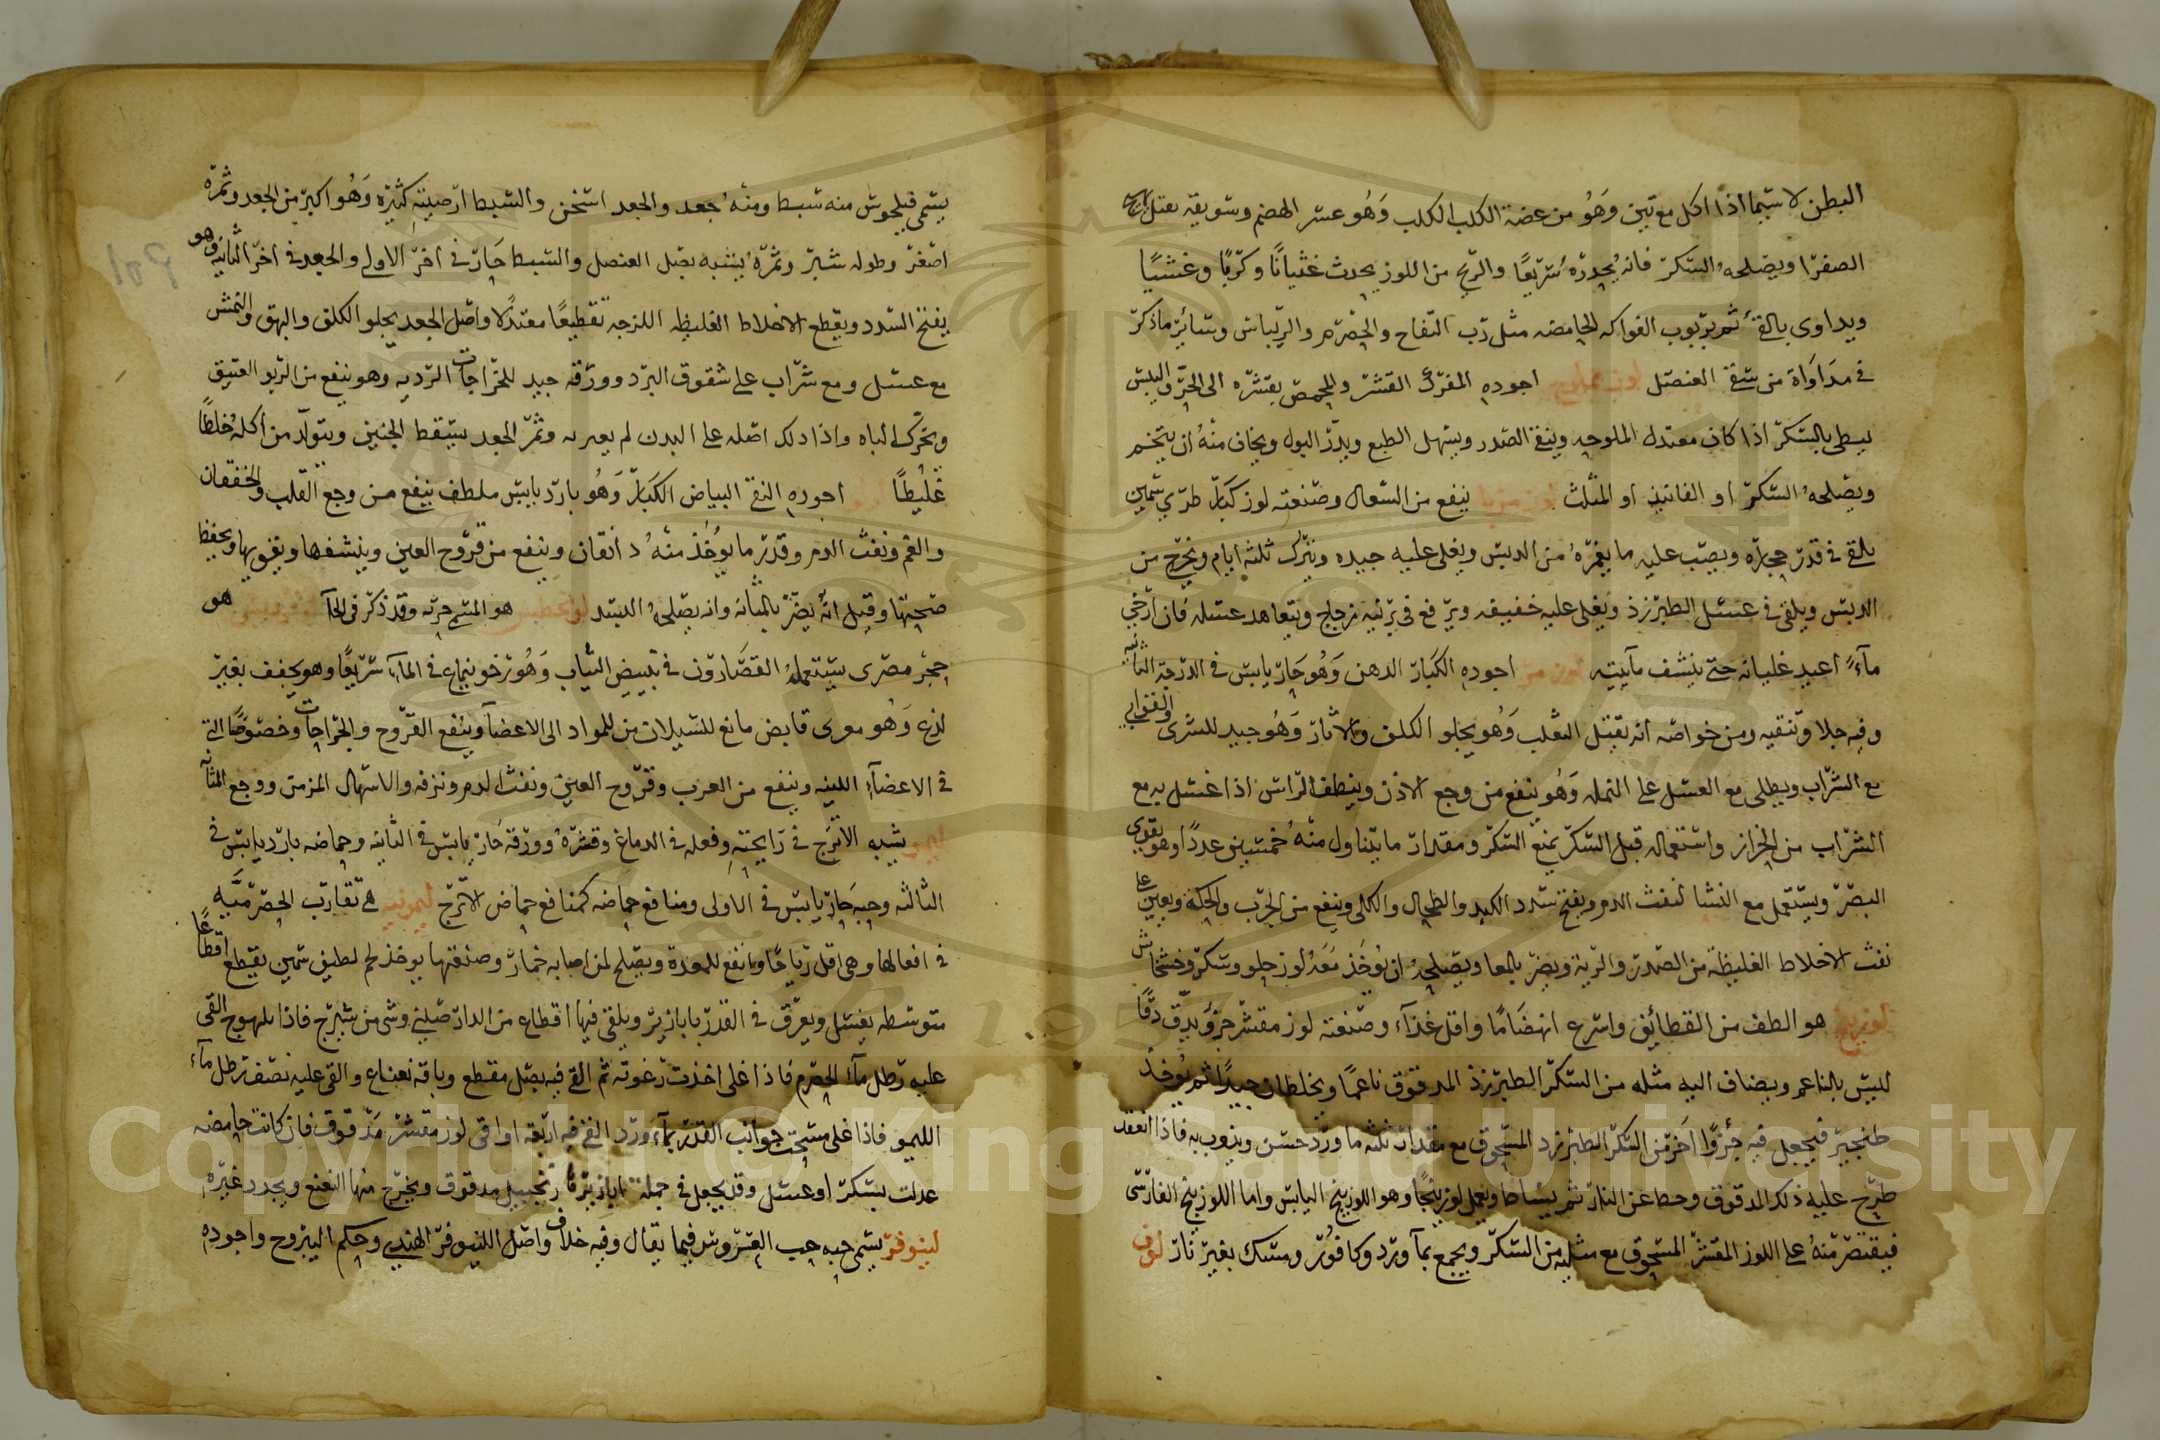 البطن لا سيما اذا اكل مع تين وهو من عضة الكلب الكلب وهو عسر الهضم وسويقه يقتل
الصفرا ويصلحه السكر فانه يحدره سريعا والزنخ من اللوز يحدث غثيانا وكربا وغشيا
ويداوى بالقئ ثم بربوب الفواكه الحامضه مثل رب التفاح والحصرم والريباس وسائر ما ذكر
في مداواة من سقي العنصل اجوده المفرك القشر والمحمص بقشره الى الحر واليبس
يبطى بالسكر اذا كان معتدل الملوحه وينقي الصدر ويسهل الطبع ويدر البول ويخاف منه ان يتخم
ويصلحه السكر او الفانيذ او المثلث لوز مربا ينفع من السعال وصنعته لوز كبار طري سمين
يلقى في قدر حجاره ويصب عليه ما يغمره من الدبس ويغلى عليه جيده ويترك ثلثه ايام ويخرج من
الدبس ويلقى في عسل الطبرزذ ويغلى عليه خفيفه ويرفع في برنيه زجاج ويتعاهد عسله فان ارخى
مآء اعيد غليانه حتى ينشف مآييته لوز مر اجوده الكبار الدهن وهو حار يابس في الدرجة الثانيه
وفيه جلا وتنقيه ومن خواصه انه يقتل الثعلب وهو يجلو الكلف والاثار وهو جيد للشرى والقوابي
مع الشراب ويطلى مع العسل على النمله وهو ينفع من وجع الاذن وينظف الراس اذا غسل به مع
الشراب من الحزاز واستعماله قبل السكر يمنع السكر ومقدار ما يتناول منه خمسين عددا وهو يقوي
البصر ويستعمل مع النشا لنفث الدم ويفتح سدد الكبد والطحال والكلى وينفع من الجرب والحكة ويعين على
نفث الاخلاط الغليظة من الصدر والرية ويضر بالمعا ويصلحه ان يؤخذ معه لوز حلو وسكر وخشخاش
لوزينج هو الطف من القطائف واسرع انهضاما واقل غذآء وصنعته لوز مقشر جزؤ يدق دقا
ليس بالناعم ويضاف اليه مثله من السكر الطبرزذ المدقوق ناعما ويخلطان جيدا ثم يؤخذ
طنجير فيجعل فيه جزوا اخر من السكر الطبرزد المسحوق مع مقدار ثلثه ما ورد حسن ويذوب به فاذا انعقد
طرح عليه ذلك المدقوق وحط عن النار ثم يساط ويعمل لوزينجا وهو اللوزينج اليابس واما اللوزينج الفارسى
فيقتصر منه على اللوز المقشر المسحوق مع مثليه من السكر ويجمع بمآ ورد وكافور ومسك بغير نار لوف
يسمى فيلجوش منه سبط ومنه جعد والجعد اسخن والسبط ارضيته كثيره وهو اكبر من الجعد وثمره
اصغر وطوله شبر وثمره يشبه بصل العنصل والسبط حار في اخر الاولى والجعد في اخر الثانيه وهو
يفتح السدد ويقطع الاخلاط الغليظه اللزجه تقطيعا معتدلا واصل الجعد يجلو الكلف والبهق والنمش
مع عسل ومع شراب على شقوق البرد وورقه جيد للخراجات الرديه وهو ينفع من الربو العتيق
ويحرك الباه واذا دلك اصله على البدن لم يعر به وثمر الجعد يسقط الجنين ويتولد من اكله خلطا
غليظا اجوده النقي البياض الكبار وهو بارد يابس ملطف ينفع من وجع القلب والخفقان
والغم ونفث الدم وقدر ما يوخذ منه دانقان وينفع من قروح العين وينشفها ويقويها ويحفظ
صحتها وقيل انه يضر بالمثانه وانه يصلحه البسد هو المسمى وقد ذكر في الحآ هو
حجر مصري يستعمله القصارون في تبييض الثياب وهو رخو ينماع في المآء سريعا وهو يجفف بغير
لذع وهو مغرى قابض مانع للسيلان من المواد الى الاعضآ وينفع القروح والجراحات وخصوصا التى
في الاعضآء اللينه وينفع من الغرب وقروح العين ونفث الدم ونزفه والاسهال المزمن ووجع المثانه
ليمو يشبه الاترج في رايحته وفعله في الدماغ وقشره وورقه حار يابس في الثانيه وحماضه بارد يابس في
الثالثه وحبه حار يابس في الاولى ومنافع حماضه كمنافع حماض الاترج ليمونيه هي تقارب الحصرميه
في افعالها وهي اقل رياحا وانفع للمعدة ويصلح لمن اصابه خمار وصنعتها يوخذ لحم لطيف سمين يقطع اقطاعا
متوسطه يغسل ويعرق في القدر بابازير ويلقى فيها اقطاع من الدارصيني وشى من شيرج فاذا تلهوج القى
عليه رطل مآء الحصرم فاذا غلى اخذت رغوته ثم القى فيه بصل مقطع وباقه نعناع والقى عليه نصف رطل مآء
الليمو فاذا غلى مسحت جوانب القدر بمآء ورد القي فيه اربعه اواقى لوز مقشر مدقوق فان كانت حامضه
عدلت بسكر او عسل وقد يجعل في جملة ابازيرها زنجبيل مدقوق ويخرج منها النعنع ويجدد غيره
لينوفر يسمى حبه حب العروس فيما يقال وفيه خلاف واصل اللينوفر الهندي وحكم اليبروح واجوده